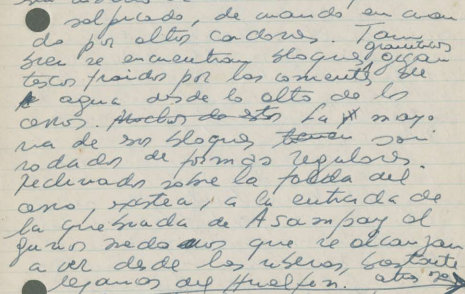 salpicado, de cuando en cuan
do por altos cardones. Tam
bien se encuentran bloques gigan
graníticos
tescos traidos por las corrientes de
agua desde lo alto de los
cerros. Muchos de estos La mayo
ria de sus bloques tienen son
rodados de formas regulares.
reclinados sobre la falda del
cerro, existen, a la entrada de
la quebrada de Asampay al
gunos medanos que se alcanzan
a ver desde las riberas, bastante
lejanas del Hualfin.